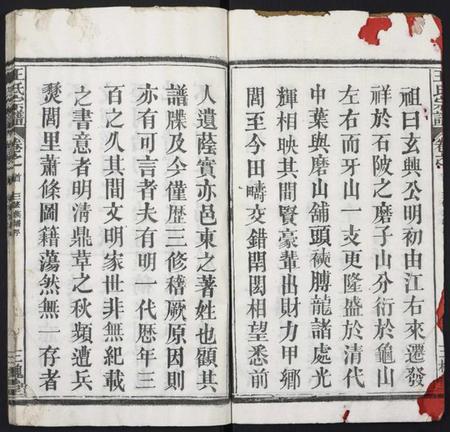 祖曰玄興公明初由江右來遷發
祥於石陂之磨子山分衍於龜山
左右而牙山一支更隆盛於清代
中葉與磨山舖頭髀龍諸處光
輝相映其間賢豪輩出財力甲鄉
閭至今田疇交錯閈閎相望悉前
人遺蔭實亦邑東之著姓也顧其
譜牒及今僅歷三修稽厥原因則
亦有可言者夫有明一代歷年三
百之久其間文明家世非無紀載
之書意者明清鼎革之秋頻遭兵
燹閭里蕭條圖籍蕩然無一存者
王氏宗譜
卷之
首
三槐堂